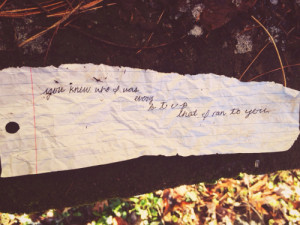 you knew who I was
every step
that I ran to you